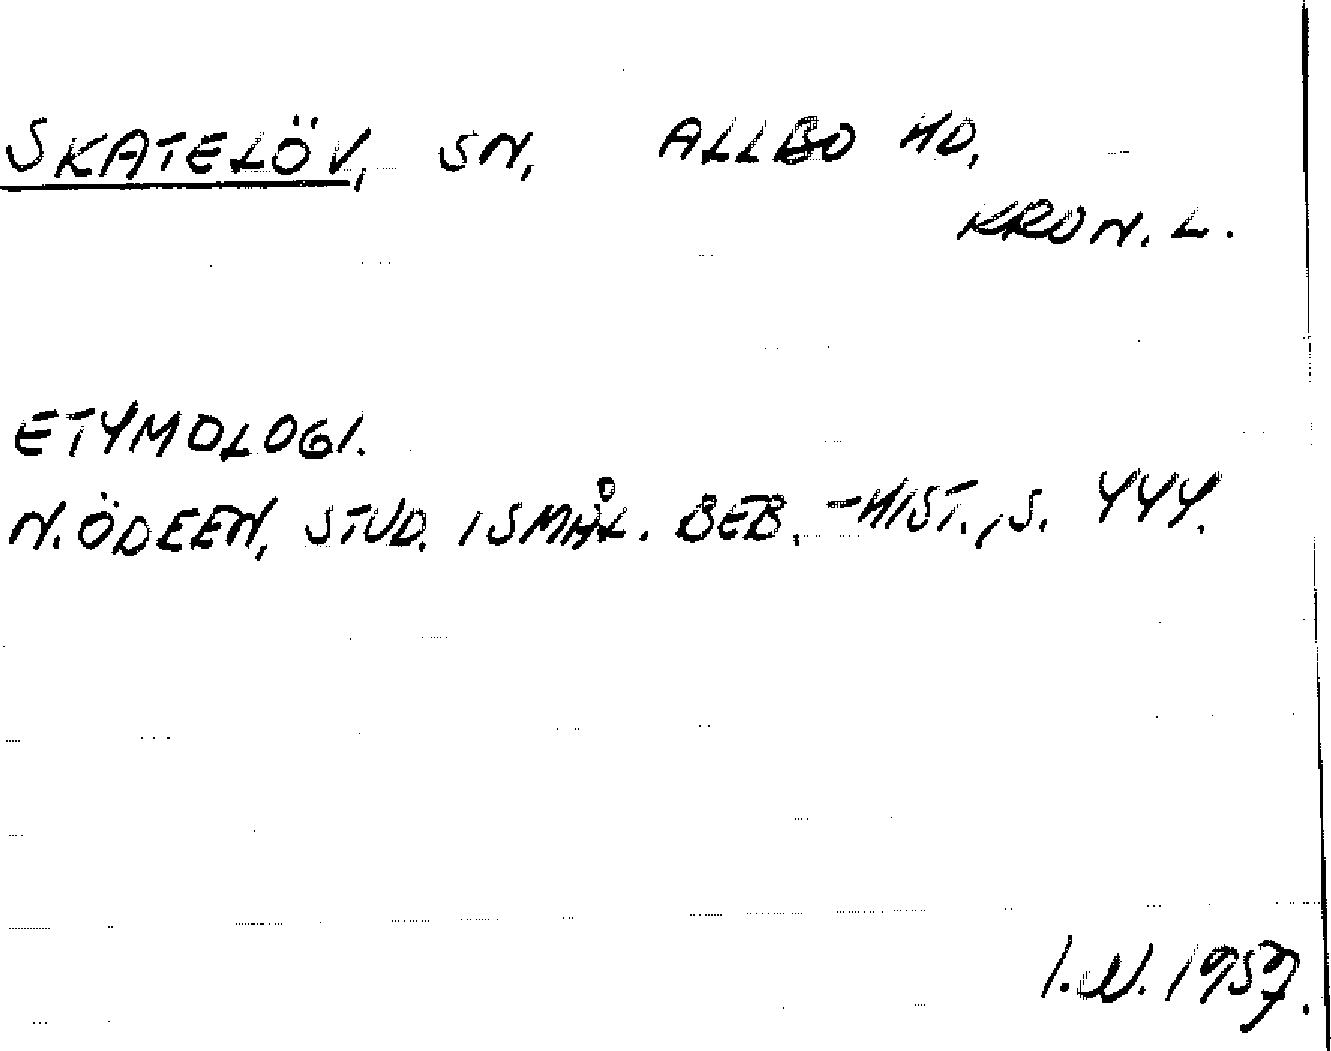 SKATELÖV, SN, ALLBO HD,
KRON. L.
ETYMOLOGI.
N. ÖDEEN, STUD. I SMÅL. BEB.-HIST., S. 444.
I.N. 1957.